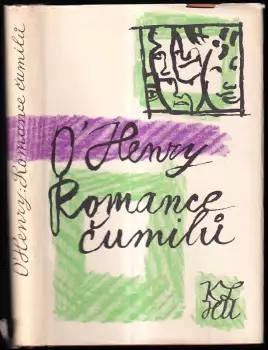 O'Henry: Romance čumilů
O'Henry
Romance
čumilů